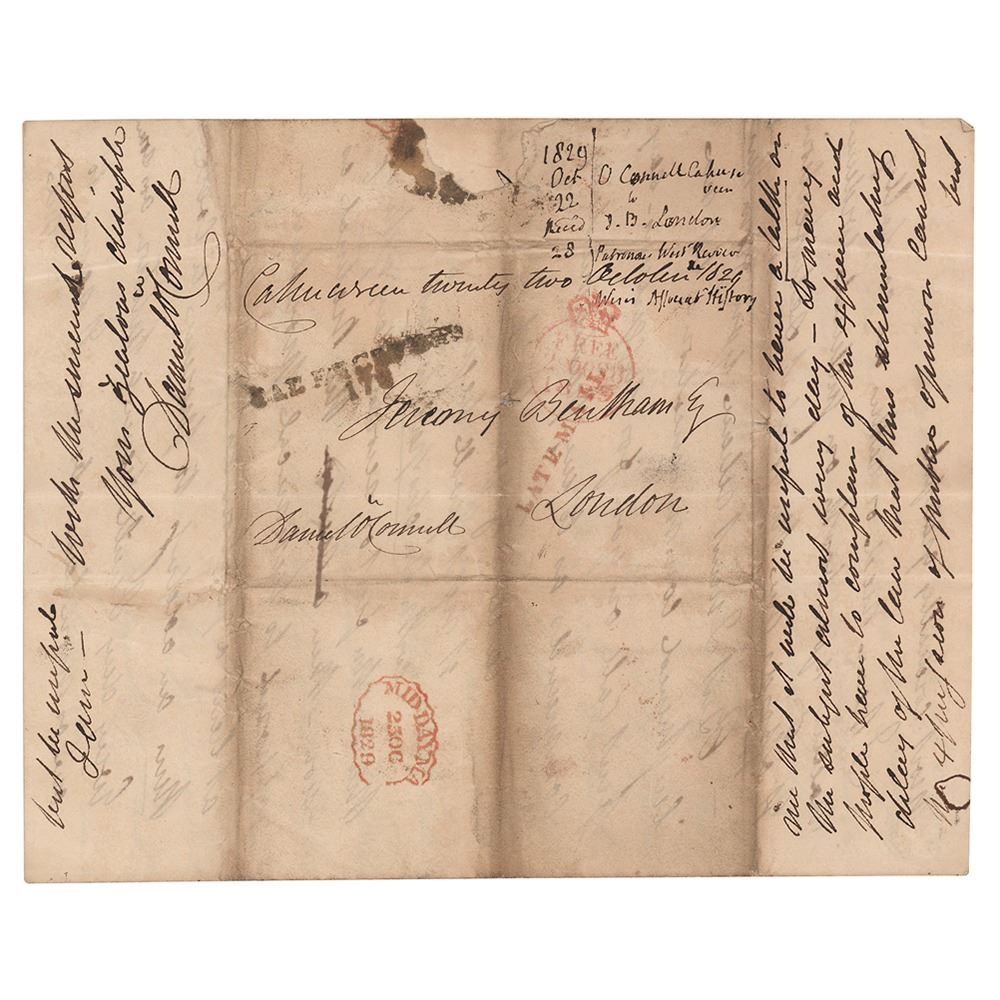 1829
Oct
22
Rec'd
28
O Connell Cahirs
veen
to
J. B. London
Patronage West Review
History
Cahirciveen twenty two October 1829
FREE
178
Jeremy Bentham Esq
LATE MAIL
London
Daniel O'Connell
MIDDAYMAIL
23OC
1829
me that it will be useful to have a talk on
the subject almost every day – so many
people have to complain of the expence and
delay of the law that thus stimulating
the of public opinion cannot
but
but be useful
I am –
with the sincerest respect
Your zealous disciple
Daniel O'Connell